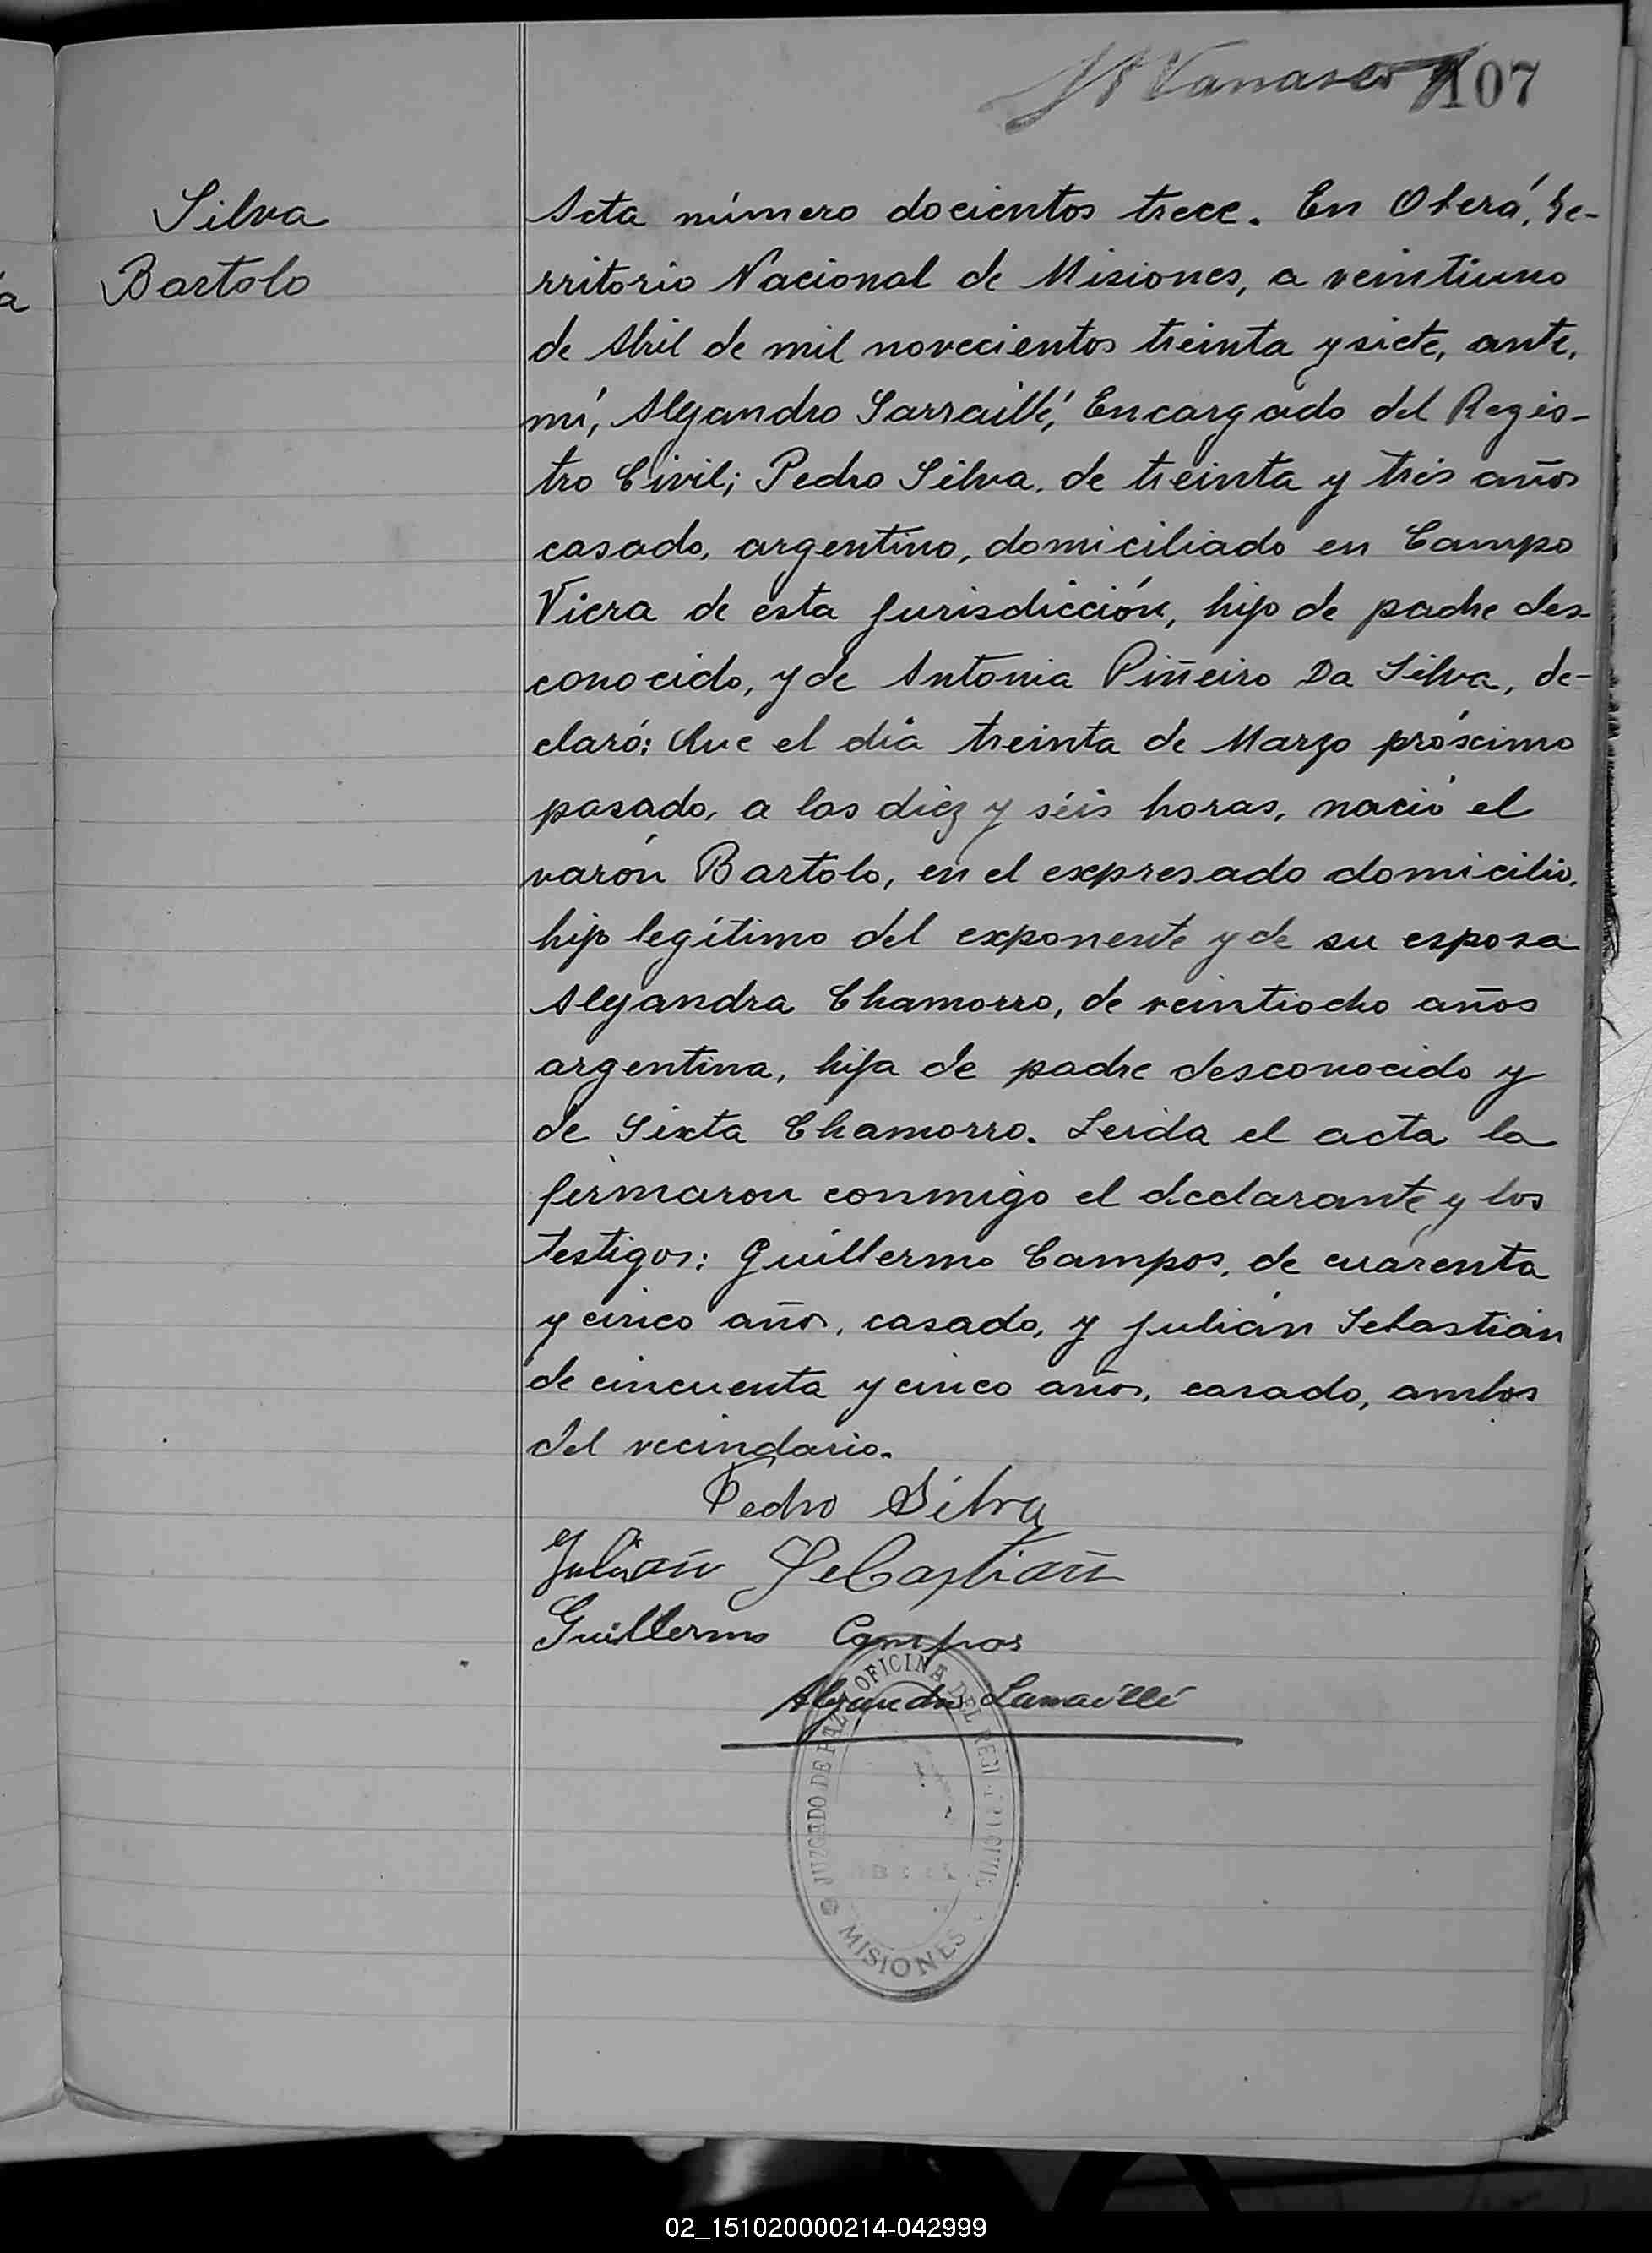 107
Silva
Bartolo
Acta número docientos trece. En Oberá, Te-
rritorio Nacional de Misiones, a veintiuno
de Abril de mil novecientos treinta y siete, ante,
mí, Alejandro Sarraillé, Encargado del Regis-
tro Civil; Pedro Silva, de treinta y tres años
casado, argentino, domiciliado en Campo
Viera de esta jurisdicción, hijo de padre des-
conocido, y de Antonia Piñeiro Da Silva, de-
claró: Que el día treinta de Marzo próximo
pasado, a las diez y séis horas, nació el
varón Bartolo, en el expresado domicilio,
hijo legítimo del exponente y de su esposa
Alejandra Chamorro, de veintiocho años
argentina, hija de padre desconocido y
de Sixta Chamorro. Leida el acta la
firmaron conmigo el declarante y los
testigos: Guillermo Campos, de cuarenta
y cinco años, casado, y Julián Sebastián
de cincuenta y cinco años, casado, ambos
del vecindario.
Pedro Silva
Julian Sebastian
Guillermo Campos
Alejandro Sarraillé
JUZGADO DE PAZ OFICINA DEL REG CIVIL
MISIONES
02_151020000214-042999